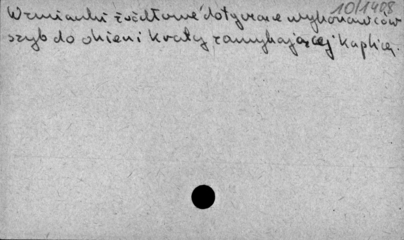 10/1408
Wzmianki źródłowe dotyczące wykonawców
szyb do okien i kraty zamykającej kaplicę.